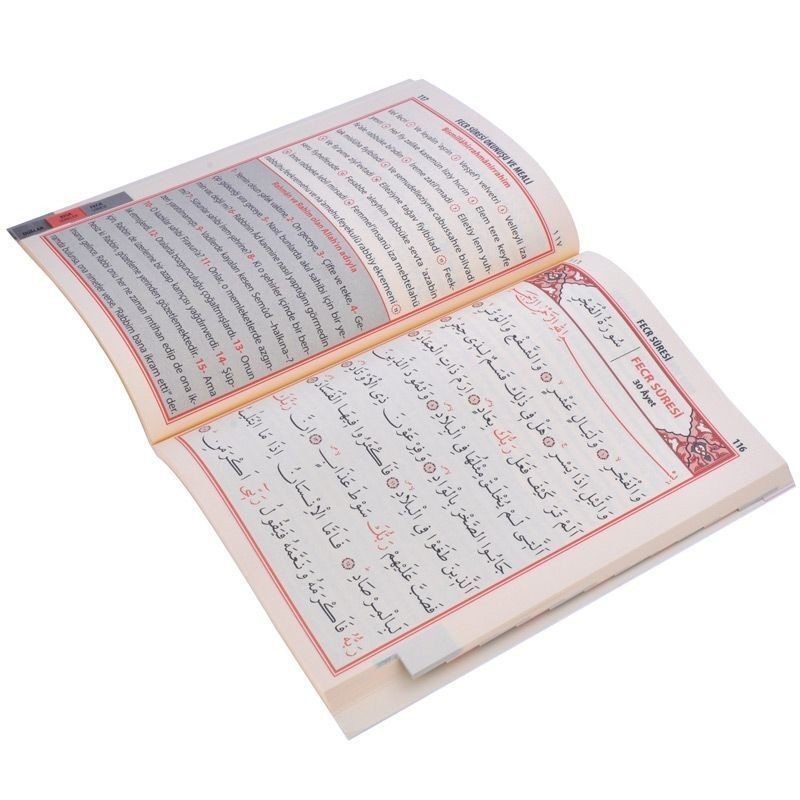 116
FECR SÛRESİ
سُورَةُ الْفَجْرِ
FECR SÛRESİ
30 Âyet
بِسْمِ اللّٰهِ الرَّحْمٰنِ الرَّحِيمِ
وَالْفَجْرِۙ ﴿١﴾ وَلَيَالٍ عَشْرٍۙ ﴿٢﴾ وَالشَّفْعِ وَالْوَتْرِۙ ﴿٣﴾
وَالَّيْلِ اِذَا يَسْرِۚ ﴿٤﴾ هَلْ فِى ذٰلِكَ قَسَمٌ لِذِى حِجْرٍۜ ﴿٥﴾
اَلَمْ تَرَ كَيْفَ فَعَلَ رَبُّكَ بِعَادٍۙ ﴿٦﴾ اِرَمَ ذَاتِ الْعِمَادِۙ ﴿٧﴾
اَلَّتِى لَمْ يُخْلَقْ مِثْلُهَا فِى الْبِلَادِۙ ﴿٨﴾ وَثَمُودَ الَّذِينَ
جَابُوا الصَّخْرَ بِالْوَادِۙ ﴿٩﴾ وَفِرْعَوْنَ ذِى الْاَوْتَادِۙ ﴿١٠﴾
اَلَّذِينَ طَغَوْا فِى الْبِلَادِۙ ﴿١١﴾ فَاَكْثَرُوا فِيهَا الْفَسَادَۙ ﴿١٢﴾
فَصَبَّ عَلَيْهِمْ رَبُّكَ سَوْطَ عَذَابٍۙ ﴿١٣﴾ اِنَّ رَبَّكَ
لَبِالْمِرْصَادِۜ ﴿١٤﴾ فَاَمَّا الْاِنْسَانُ اِذَا مَا ابْتَلٰيهُ
رَبُّهُ فَاَكْرَمَهُ وَنَعَّمَهُ فَيَقُولُ رَبِّى اَكْرَمَنِۜ
117
FECR SÛRESİ OKUNUŞU VE MEALİ
١١٧
Bismillâhirrahmânirrahîm
Vel fecri ① Ve leyâlin 'aşrin ② Veşşef'ı velvetri ③ Velleyli iza
yesri ④ Hel fiy zalike kasemün lizîy hıcrin ⑤ Elem tere keyfe
fe'ale rabbüke bi'adin ⑥ İreme zatil'ımadi ⑦ Elletiy lem yuh-
lak mislüha fiylbiladi ⑧ Ve semûdelleziyne cabussahre bilvadi
⑨ Ve fir'avne ziyl'evtadi ⑩ Elleziyne tağav fiylbiladi ⑪ Feek-
seru fiyhelfesade ⑫ Fesabbe 'aleyhim rabbüke sevta 'azabin
⑬ İnne rabbeke lebil mirsadi ⑭ Femmel'insanü iza mebtelahü
rabbühu feekremehu ve na'amehu feyekulü rabbiy ekremeni ⑮
Rahmân ve Rahîm olan Allah'ın adıyla
1- Yemin olsun şafak vaktine, 2- On geceye. 3- Çifte ve teke, 4- Ge-
çip gideceği sıra geceye. 5- Nasıl, bunlarda akıl sahibi için bir ye-
min var, değil mi? 6- Rabbinin Âd kavmine nasıl yaptığını görmedin
mi? 7- Sütunlar sahibi İrem şehrine? 8- Ki o şehirler içinde bir ben-
zeri yaratılmamıştı. 9- Vadilerde kayaları kesen Semûd –halkına–?
10- O kazıklar sahibi Firavun'a? 11- Onlar, o memleketlerde azgın-
lık etmişlerdi. 12- Onlarda bozgunculuğu çoğaltmışlardı. 13- Onun
için, Rabbin de üzerine, bir azap kamçısı yağdırıverdi. 14- Şüp-
hesiz ki Rabbin, gözetleme yerinden gözetlemektedir. 15- Ama
insana gelince, Rabbi onu her ne zaman imtihan edip de ona ik-
ramda bulunsa, ona nimetler verse, "Rabbim bana ikram etti" der.
DUALAR
KISA